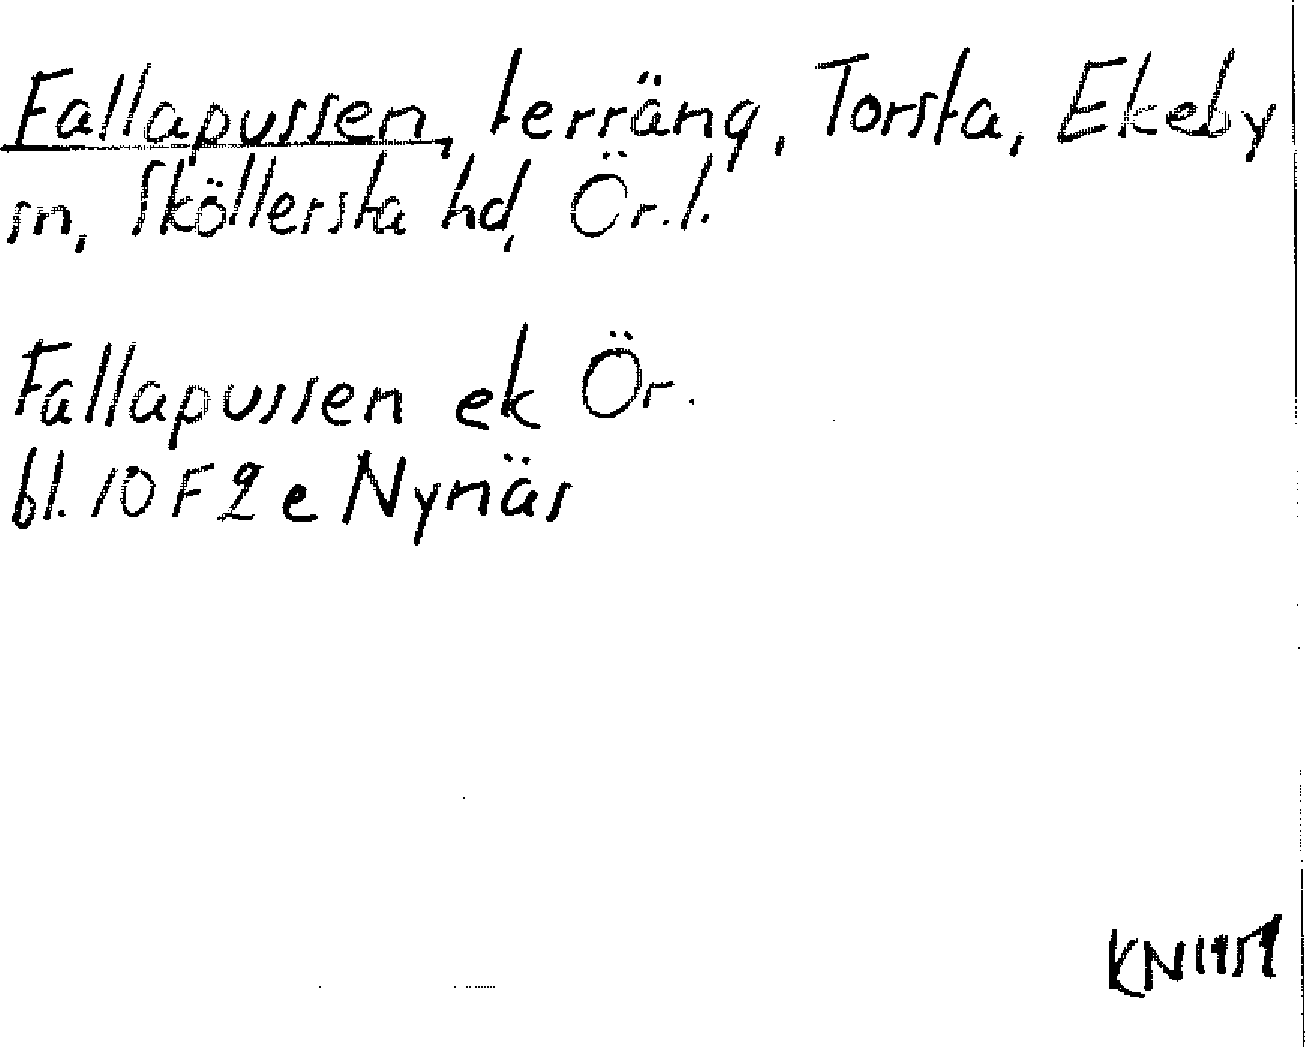 Fallapussen, terräng, Torsta, Ekeby
sn, Sköllersta hd, Ör. l.
Fallapussen ek Ör.
bl. 10 F 2 e Nynäs
KN